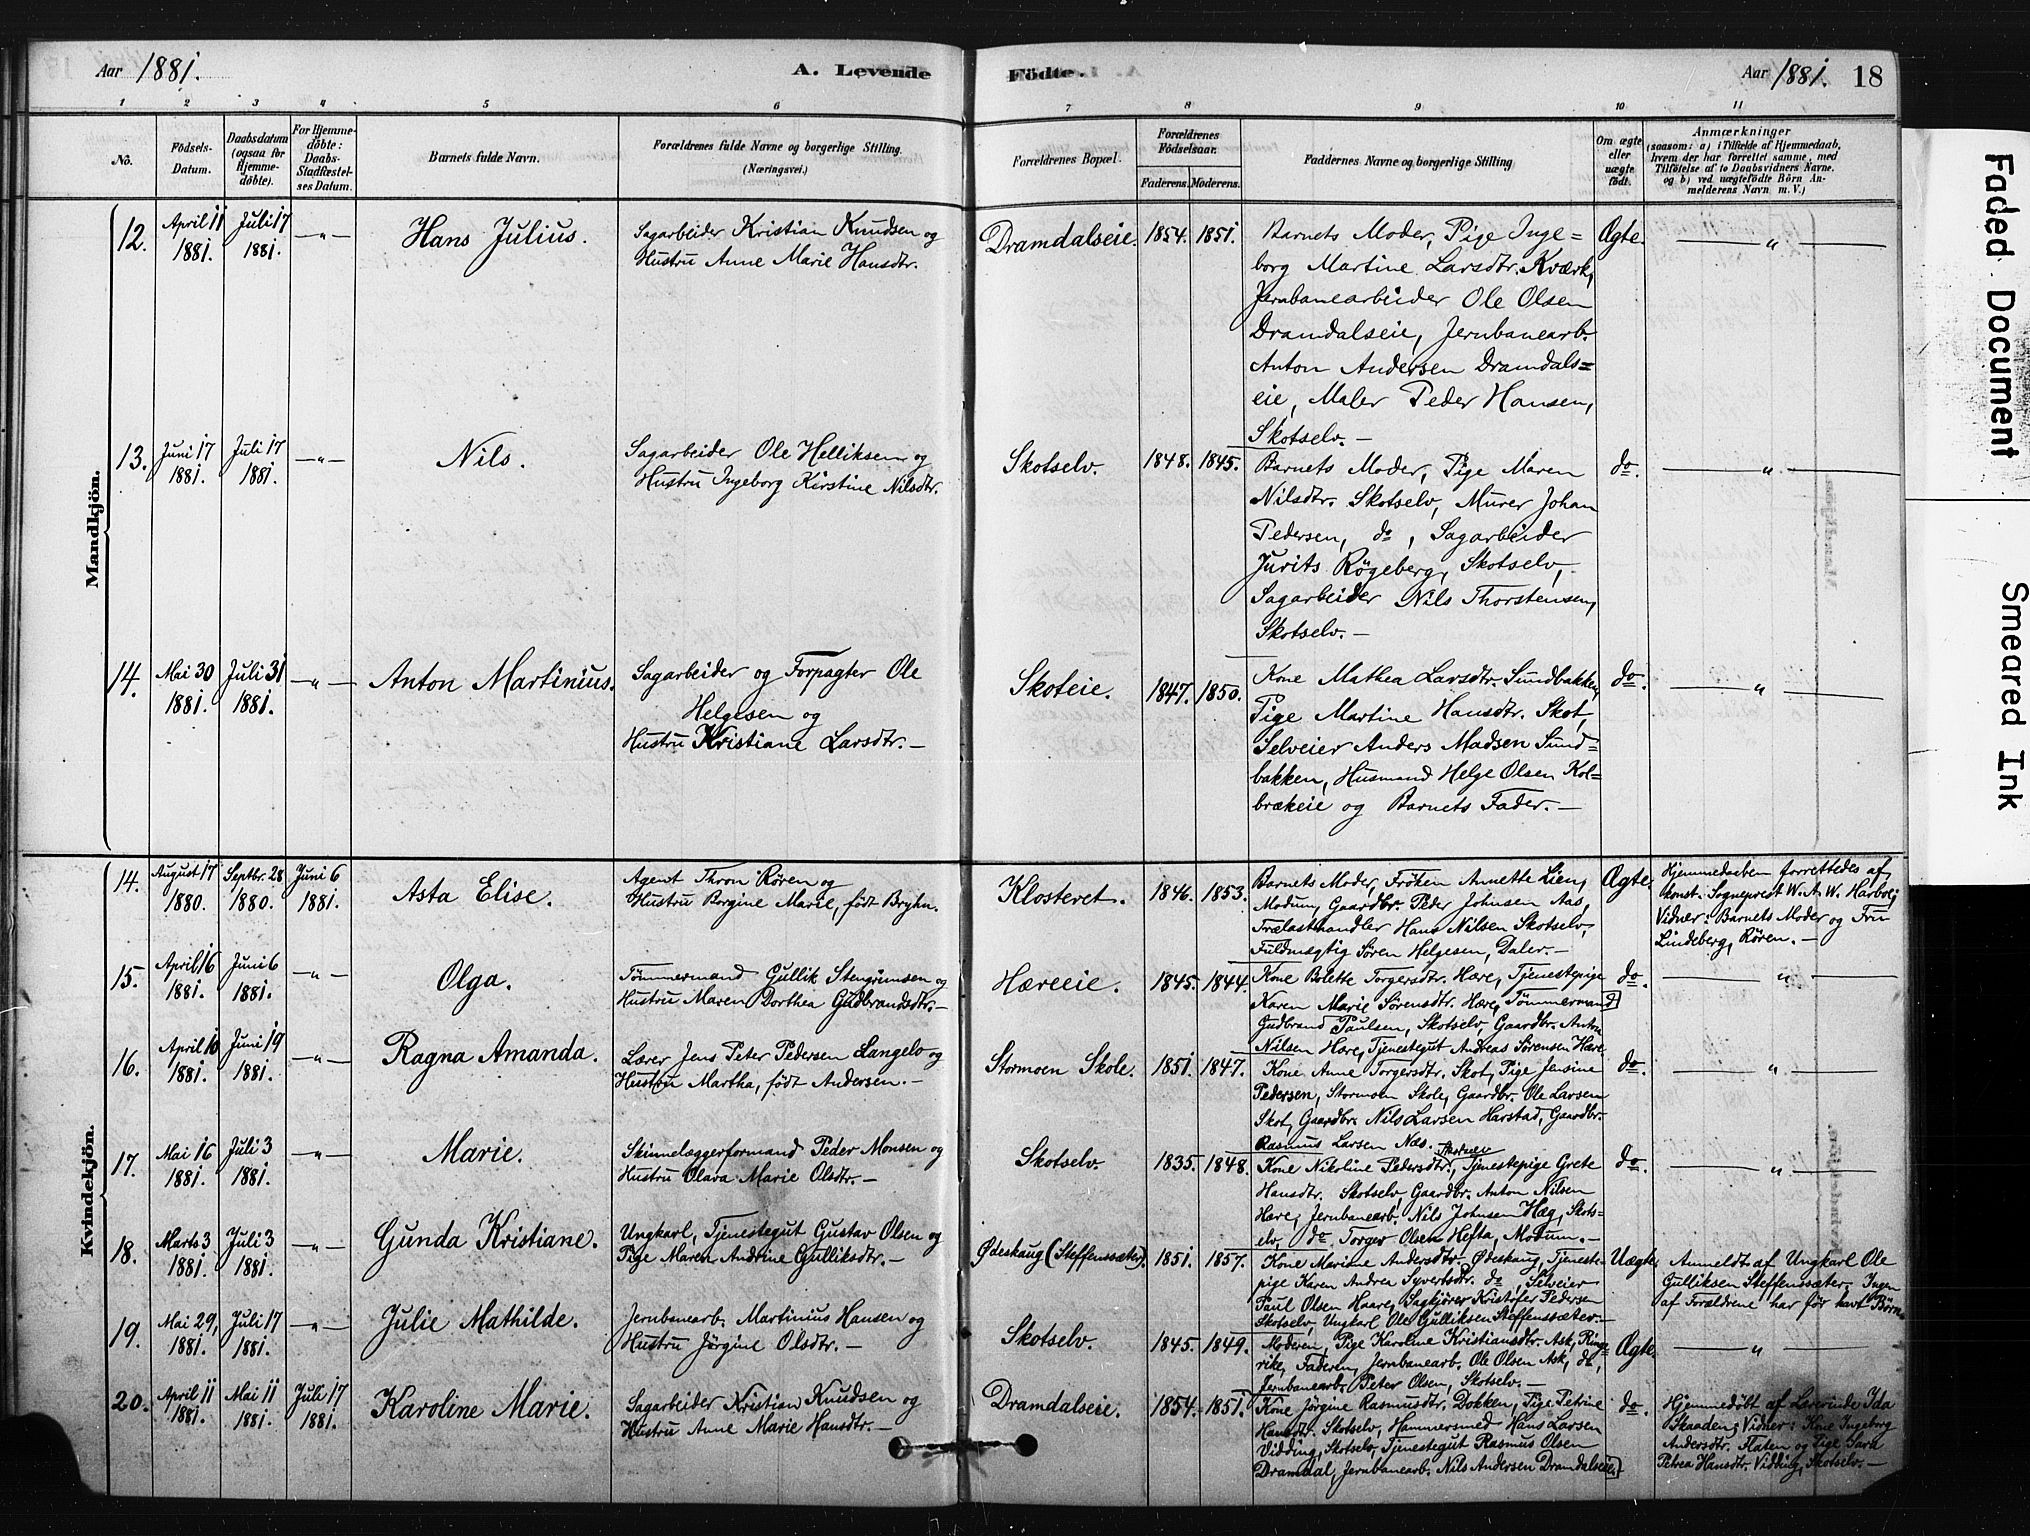 Aar 1881.
A. Levende
Födte.
Aar 1881.
18
1 2 3 4 5 6 7 8 9 10 11
No.
Födsels-
Datum.
Daabsdatum
(ogsaa for
Hjemme-
döbte).
For Hjemme-
döbte:
Daabs-
Stadfæstel-
ses Datum.
Barnets fulde Navn.
Forældrenes fulde Navne og borgerlige Stilling.
(Næringsvei.)
Forældrenes Bopæl.
Forældrenes
Födselsaar.
Faderens. Moderens.
Faddernes Navne og borgerlige Stilling
Om ægte
eller
uægte
födt.
Anmærkninger
(saasom: a) i Tilfælde af Hjemmedaab,
hvem der har forrettet samme, med
Tilföielse af to Daabsvidners Navne.
og b) ved uægtefödte Börn An-
melderens Navn m. V.)
Mandkjön.
12.
April 11
1881.
Juli 17
1881.
—"—
Hans Julius.
Sagarbeider Kristian Knudsen og
Hustru Anne Marie Hansdtr.
Dramdalseie.
1854. 1851.
Barnets Moder, Pige Inge=
borg Martine Larsdtr. Kværk,
Jernbanearbeider Ole Olsen
Dramdalseie, Jernbanearb.
Anton Andersen Dramdals=
eie, Maler Peder Hansen,
Skotselv.—
Ægte.
— " —
13.
Juni 17
1881.
Juli 17
1881.
—"—
Nils.
Sagarbeider Ole Helliksen og
Hustru Ingeborg Kirstine Nilsdtr.
Skotselv.
1848. 1845.
Barnets Moder, Pige Maren
Nilsdtr. Skotselv, Murer Johan
Pedersen, do, Sagarbeider
Jurits Røgeberg, Skotselv,
Sagarbeider Nils Thorstensen,
Skotselv.—
do.
— " —
14.
Mai 30
1881.
Juli 31
1881.
—"—
Anton Martinius.
Sagarbeider og Forpagter Ole
Helgesen og
Hustru Kristiane Larsdtr.—
Skoteie.
1847. 1850.
Kone Mathea Larsdtr. Sundbakken,
Pige Martine Hansdtr. Skot,
Selveier Anders Madsen Sund=
bakken, Husmand Helge Olsen Kol=
brækeie og Barnets Fader.—
do.
— " —
Kvindekjön.
14.
August 17
1880.
Septbr. 28
1880.
Juni 6
1881.
Asta Elise.
Agent Thron Røren og
Hustru Borgine Marie, født Bryhn.
Klosteret.
1846. 1853.
Barnets Moder, Frøken Annette Lien,
Modum, Gaardbr. Peder Johnsen Aas,
Trælasthandler Hans Nilsen Skotselv,
Fuldmægtig Søren Helgesen, Daler.—
Ægte.
Hjemmedaaben forrettedes af
konst. Sogneprest W. A. W. Harboe;
Vidner: Barnets Moder og Fru
Lindeberg, Røren.—
15.
April 16
1881.
Juni 6
1881.
—"—
Olga.
Tømmermand Gullik Stengrimsen og
Hustru Maren Dorthea Gudbrandsdtr.—
Hæreeie.
1845. 1844.
Kone Bolette Torgersdtr. Hære, Tjenestepige
Karen Marie Sørensdtr. Hære, Tømmermand
Gudbrand Paulsen, Skotselv, Gaardbr. Anton
Nilsen Hære, Tjenestegut Andreas Sørensen Hære.
do.
— " —
16.
April 10
1881.
Juni 19
1881.
—"—
Ragna Amanda.
Lærer Jens Peter Pedersen Langelo og
Hustru Martha, født Andersen.—
Stormoen Skole.
1851. 1847.
Kone Anne Torgersdtr. Skot, Pige Jensine
Pedersen, Stormoen Skole, Gaardbr. Ole Larsen
Skot, Gaardbr. Nils Larsen Harstad, Gaardbr.
Rasmus Larsen Næs.
do.
— " —
17.
Mai 16
1881.
Juli 3
1881.
—"—
Marie.
Skinnelæggerformand Peder Monsen og
Hustru Olava Marie Olsdtr.—
Skotselv.
1835. 1848.
Kone Nikoline Pedersdtr. Skotselv, Tjenestepige Grete
Hansdtr. Skotselv, Gaardbr. Anton Nilsen
Hære, Jernbanearb. Nils Johnsen Hæg, Skots=
elv, do Torger Olsen Hefta, Modum.—
do.
— " —
18.
Marts 3
1881.
Juli 3
1881.
—"—
Gunda Kristiane.
Ungkarl, Tjenestegut Gustav Olsen og
Pige Maren Andrine Gulliksdtr.—
Ødeskaug (Steffenssæter).
1851. 1857.
Kone Mariane Andersdtr. Ødeskaug, Tjeneste-
pige Karen Andrea Syvertsdtr. do, Selveier
Paul Olsen Haare, Sagkjører Kristofer Pedersen
Skotselv, Ungkarl Ole Gulliksen Steffenssæter.—
Uægte.
Anmeldt af Ungkarl Ole
Gulliksen Steffenssæter. Ingen
af Forældrene har før havt Børn.
19.
Mai 29,
1881.
Juli 17
1881.
—"—
Julie Mathilde.
Jernbanearb. Martinius Hansen og
Hustru Jørgine Olsdtr.—
Skotselv.
1845. 1849.
Moderen, Pige Karoline Kristiansdtr. Ask, Ringe=
rike, Faderen, Jernbanearb. Ole Olsen Ask, do,
Jernbanearb. Peter Olsen, Skotselv.—
Ægte.
— " —
20.
April 11
1881.
Mai 11
1881.
Juli 17
1881.
Karoline Marie.
Sagarbeider Kristian Knudsen og
Hustru Anne Marie Hansdtr.—
Dramdalseie.
1854. 1851.
Kone Jørgine Rasmusdtr. Dokken, Pige Petrine
Hansdtr. Skotselv, Hammersmed Hans Larsen
Vidding, Skotselv, Tjenestegut Rasmus Olsen
Dramdal, Jernbanearb. Nils Andersen Dramdalseie.
do.
Hjemmedøbt af Lærerinde Ida
Skaaden; Vidner: Kone Ingeborg
Andersdtr. Flaten og Pige Sara
Petrea Hansdtr. Vidding, Skotselv.—
Faded Document
Smeared Ink